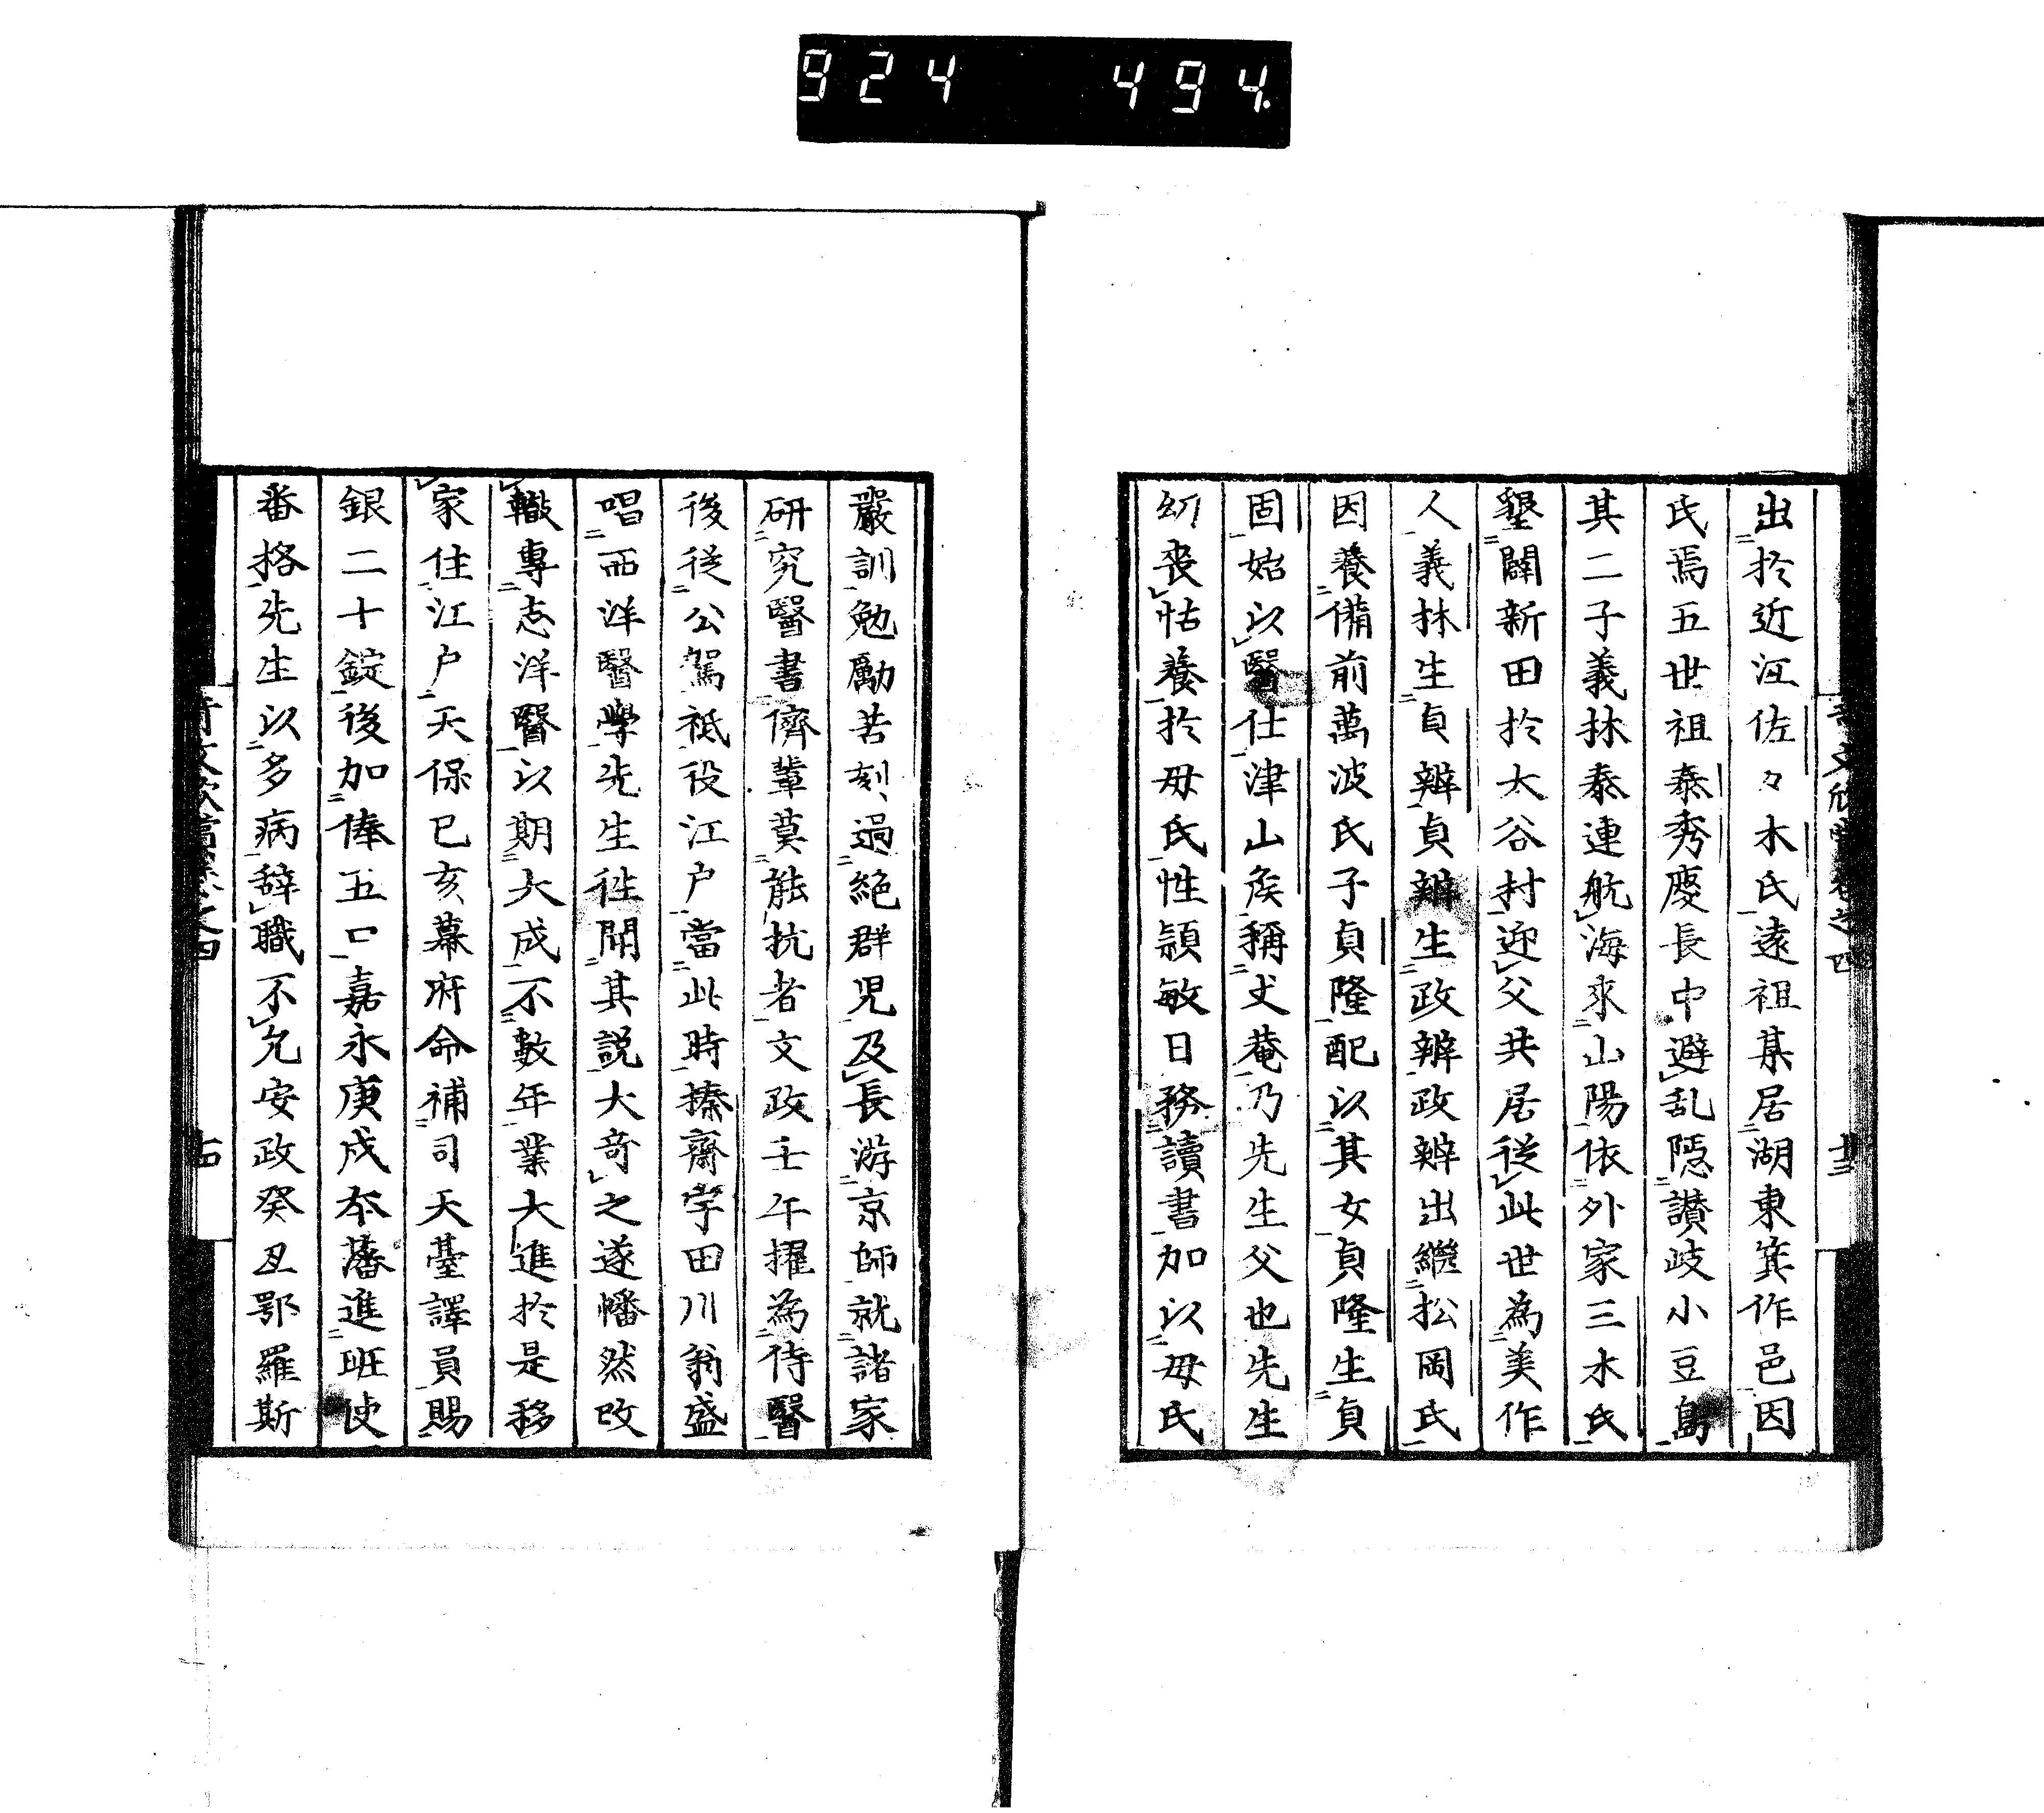 924 494.
出於近江佐々木氏遠祖某居湖東箕作邑因
氏焉五世祖泰秀慶長中避乱隠讃岐小豆島
其二子義林泰連航海来山陽依外家三木氏
墾闢新田於大谷村迎父共居従此世為美作
人義林生貞辨貞辦生政辨政辨出繼松岡氏
因養備前萬波氏子貞隆配以其女貞隆生貞
固始以醫仕津山矦稱丈菴乃先生父也先生
幼喪怙養於毋氏性穎敏日務讀書加以毋氏
嚴訓勉勵苦刻過絶群児及長游京師就諸家
研究醫書儕輩莫能抗者文政壬午擢為侍醫
後従公駕祗役江户當此時搸齋宇田川翁盛
唱西洋醫學先生徃聞其説大奇之遂幡然改
轍專志洋醫以期大成不數年業大進於是移
家住江户天保已亥幕府命補司天臺譯員賜
銀二十錠後加俸五口嘉永庚戌本藩進班使
番格先生以多病辞職不允安政癸丑鄂羅斯